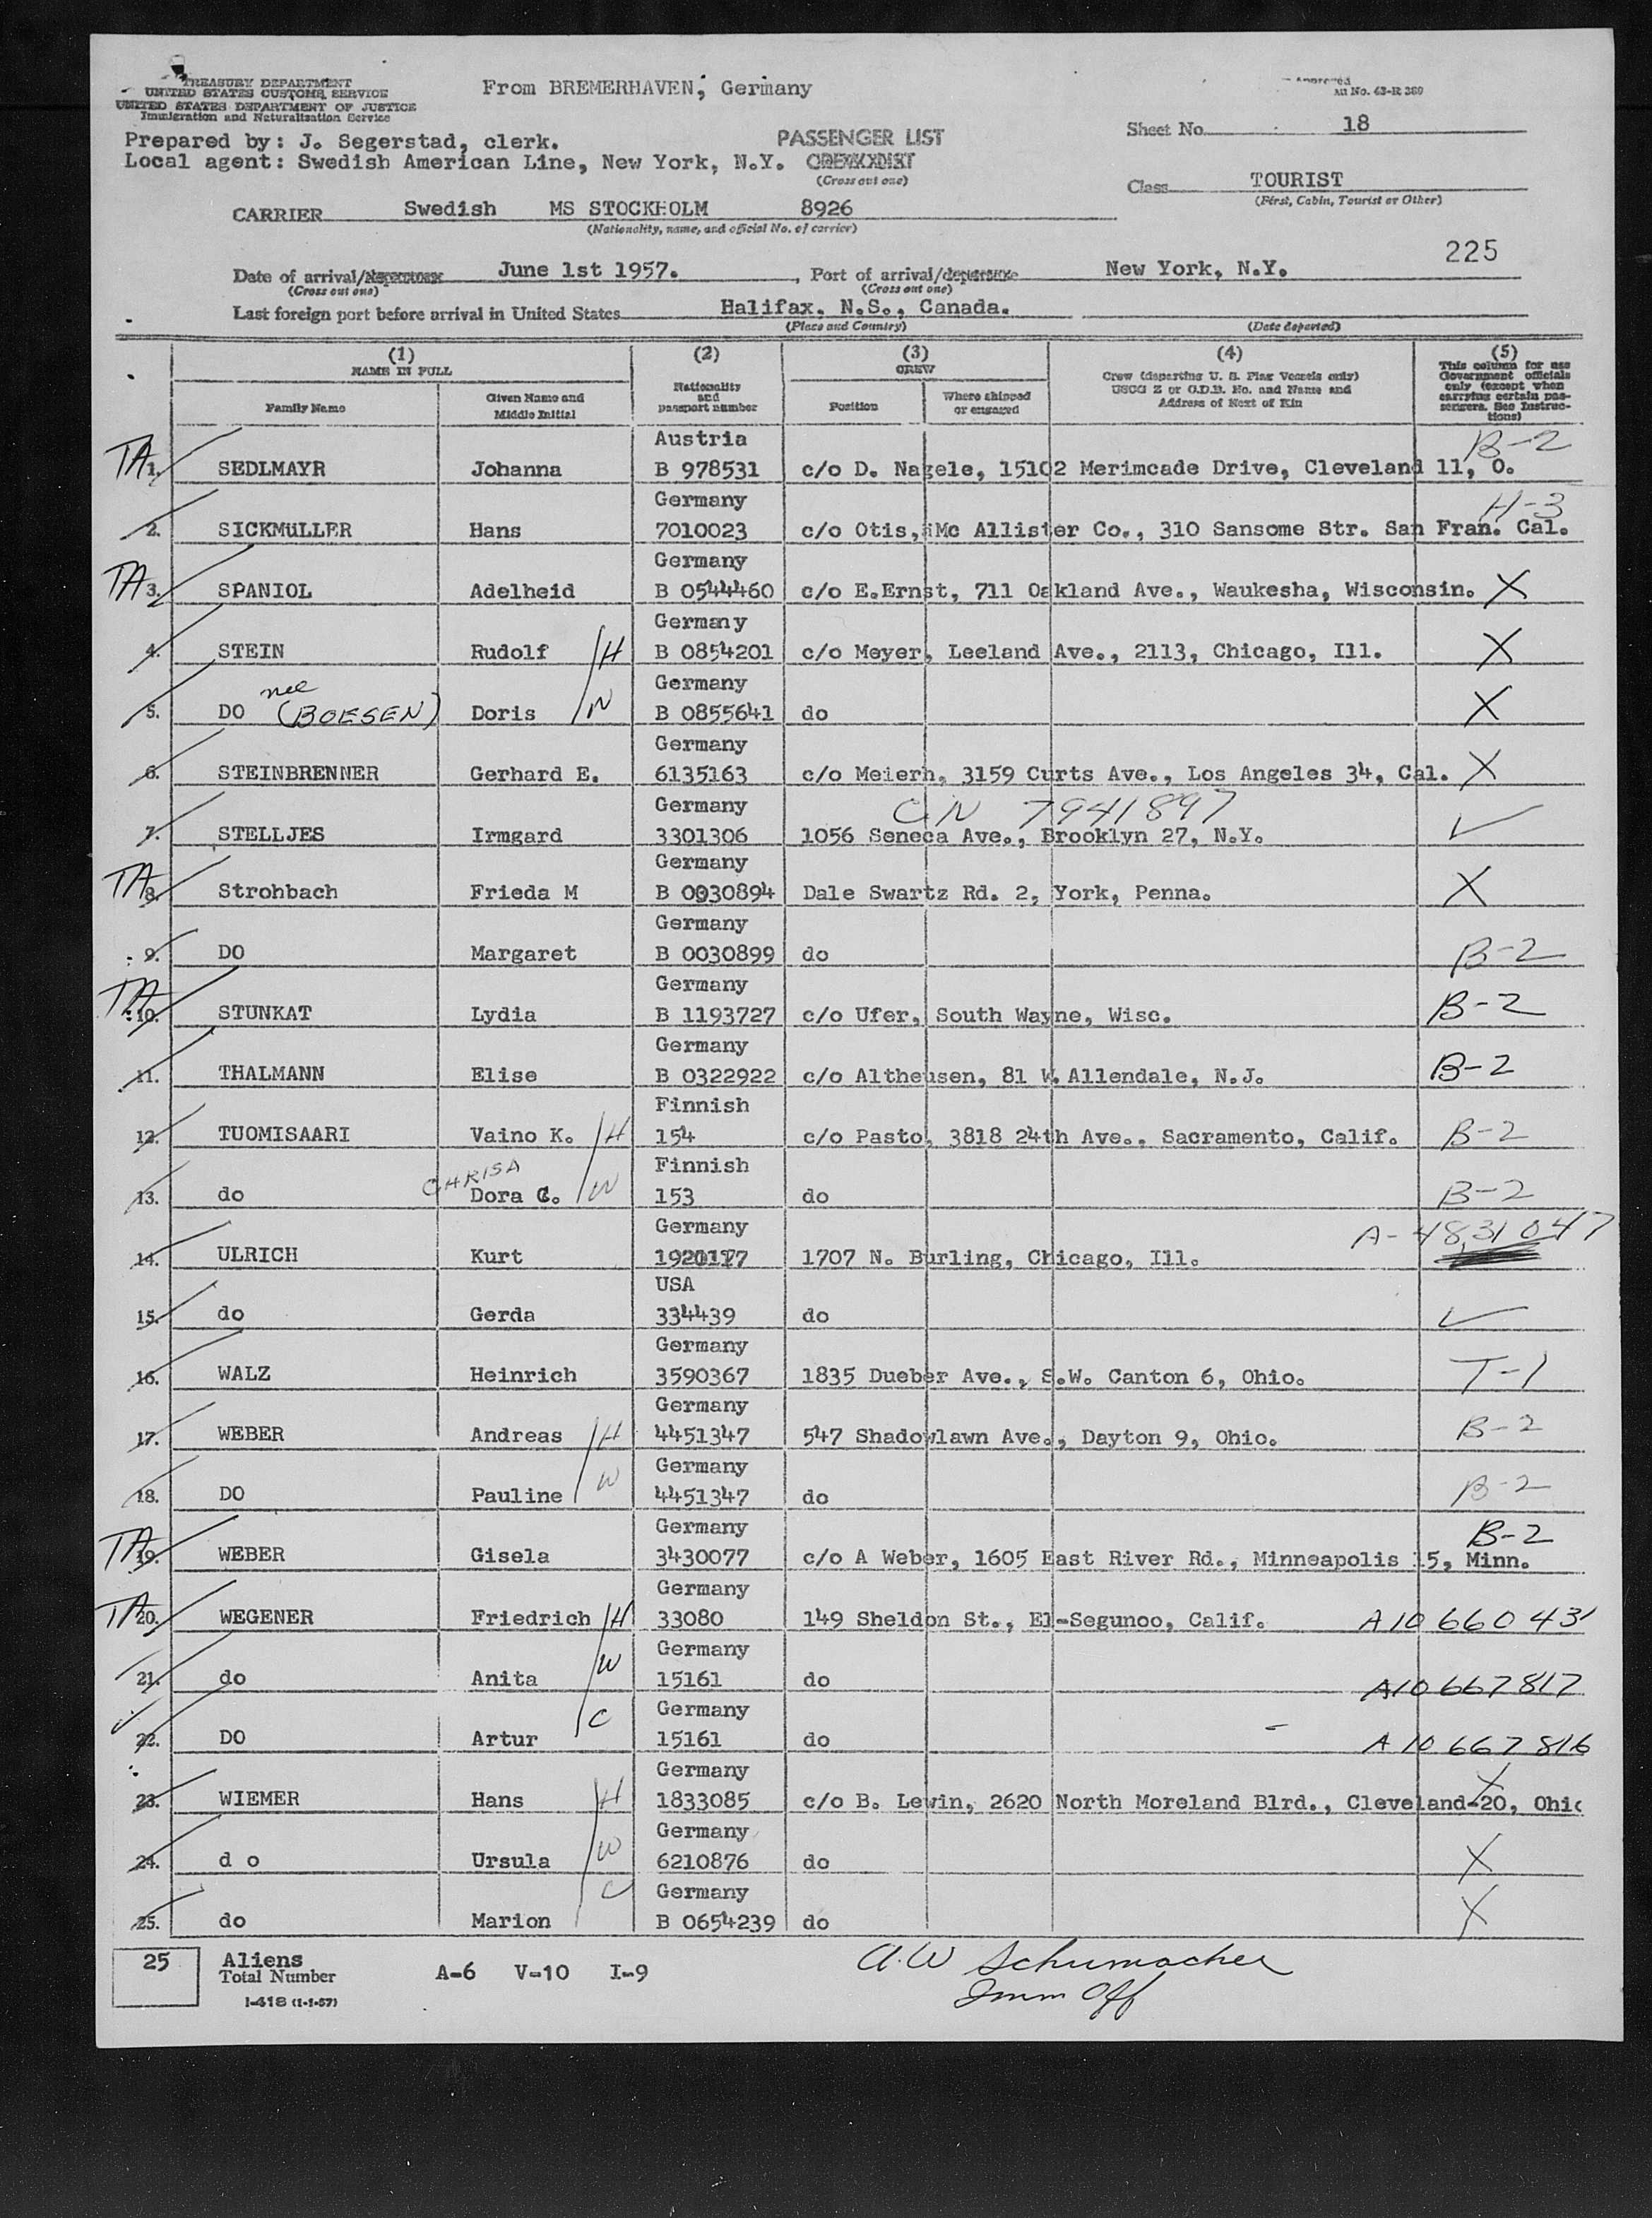 TREASURY DEPARTMENT
UNITED STATES CUSTOMS SERVICE
UNITED STATES DEPARTMENT OF JUSTICE
Immigration and Naturalization Service
From BREMERHAVEN, Germany
Approved
No. 43-R 380
Prepared by: J. Segerstad, clerk.
PASSENGER LIST
Sheet No. 18
Local agent: Swedish American Line, New York, N.Y.
(Cross out one)
Class TOURIST
(First, Cabin, Tourist or Other)
CARRIER Swedish MS STOCKHOLM 8926
(Nationality, name, and official No. of carrier)
225
Date of arrival/ June 1st 1957. , Port of arrival/departure New York, N.Y.
(Cross out one) (Cross out one)
Last foreign port before arrival in United States Halifax, N.S., Canada.
(Place and Country) (Date departed)
(1) NAME IN FULL
Family Name
Given Name and Middle Initial
(2) Nationality and passport number
(3) CREW
Position
Where shipped or engaged
(4) Crew (departing U. S. Flag Vessels only) USCG Z or C.D.B. No. and Name and Address of Next of Kin
(5) This column for use Government officials only (except when carrying certain passengers. See Instructions)
Austria B-2
TA 1. SEDLMAYR Johanna B 978531 c/o D. Nagele, 15102 Merimcade Drive, Cleveland 11, O.
Germany H-3
2. SICKMüLLER Hans 7010023 c/o Otis, Mc Allister Co., 310 Sansome Str. San Fran. Cal.
Germany
TA 3. SPANIOL Adelheid B 0544460 c/o E.Ernst, 711 Oakland Ave., Waukesha, Wisconsin. X
Germany
4. STEIN Rudolf H B 0854201 c/o Meyer, Leeland Ave., 2113, Chicago, Ill. X
nee Germany
5. DO (BOESEN) Doris W B 0855641 do X
Germany
6. STEINBRENNER Gerhard E. 6135163 c/o Meierh, 3159 Curts Ave., Los Angeles 34, Cal. X
Germany CN 7941897
7. STELLJES Irmgard 3301306 1056 Seneca Ave., Brooklyn 27, N.Y. ✓
Germany
TA 8. Strohbach Frieda M B 0030894 Dale Swartz Rd. 2, York, Penna. X
Germany
9. DO Margaret B 0030899 do B-2
Germany
TA 10. STUNKAT Lydia B 1193727 c/o Ufer, South Wayne, Wisc. B-2
Germany
11. THALMANN Elise B 0322922 c/o Altheusen, 81 W. Allendale, N.J. B-2
Finnish
12. TUOMISAARI Vaino K. H 154 c/o Pasto, 3818 24th Ave., Sacramento, Calif. B-2
CHRISA Finnish
13. do Dora C. W 153 do B-2
Germany A-4831047
14. ULRICH Kurt 1920117 1707 N. Burling, Chicago, Ill.
USA
15. do Gerda 334439 do ✓
Germany
16. WALZ Heinrich 3590367 1835 Dueber Ave., S.W. Canton 6, Ohio. T-1
Germany
17. WEBER Andreas H 4451347 547 Shadowlawn Ave., Dayton 9, Ohio. B-2
Germany
18. DO Pauline W 4451347 do B-2
Germany B-2
TA 19. WEBER Gisela 3430077 c/o A Weber, 1605 East River Rd., Minneapolis 15, Minn.
Germany
TA 20. WEGENER Friedrich H 33080 149 Sheldon St., El-Segunoo, Calif. A10 660 431
Germany
21. do Anita W 15161 do A10 667 817
Germany
22. DO Artur C 15161 do A 10 667 816
Germany X
23. WIEMER Hans H 1833085 c/o B. Lewin, 2620 North Moreland Blrd., Cleveland-20, Ohio
Germany
24. d o Ursula W 6210876 do X
Germany
25. do Marion C B 0654239 do X
25 Aliens
Total Number A-6 V-10 I-9
I-418 (1-1-57)
A.W Schumacher
Imm Off